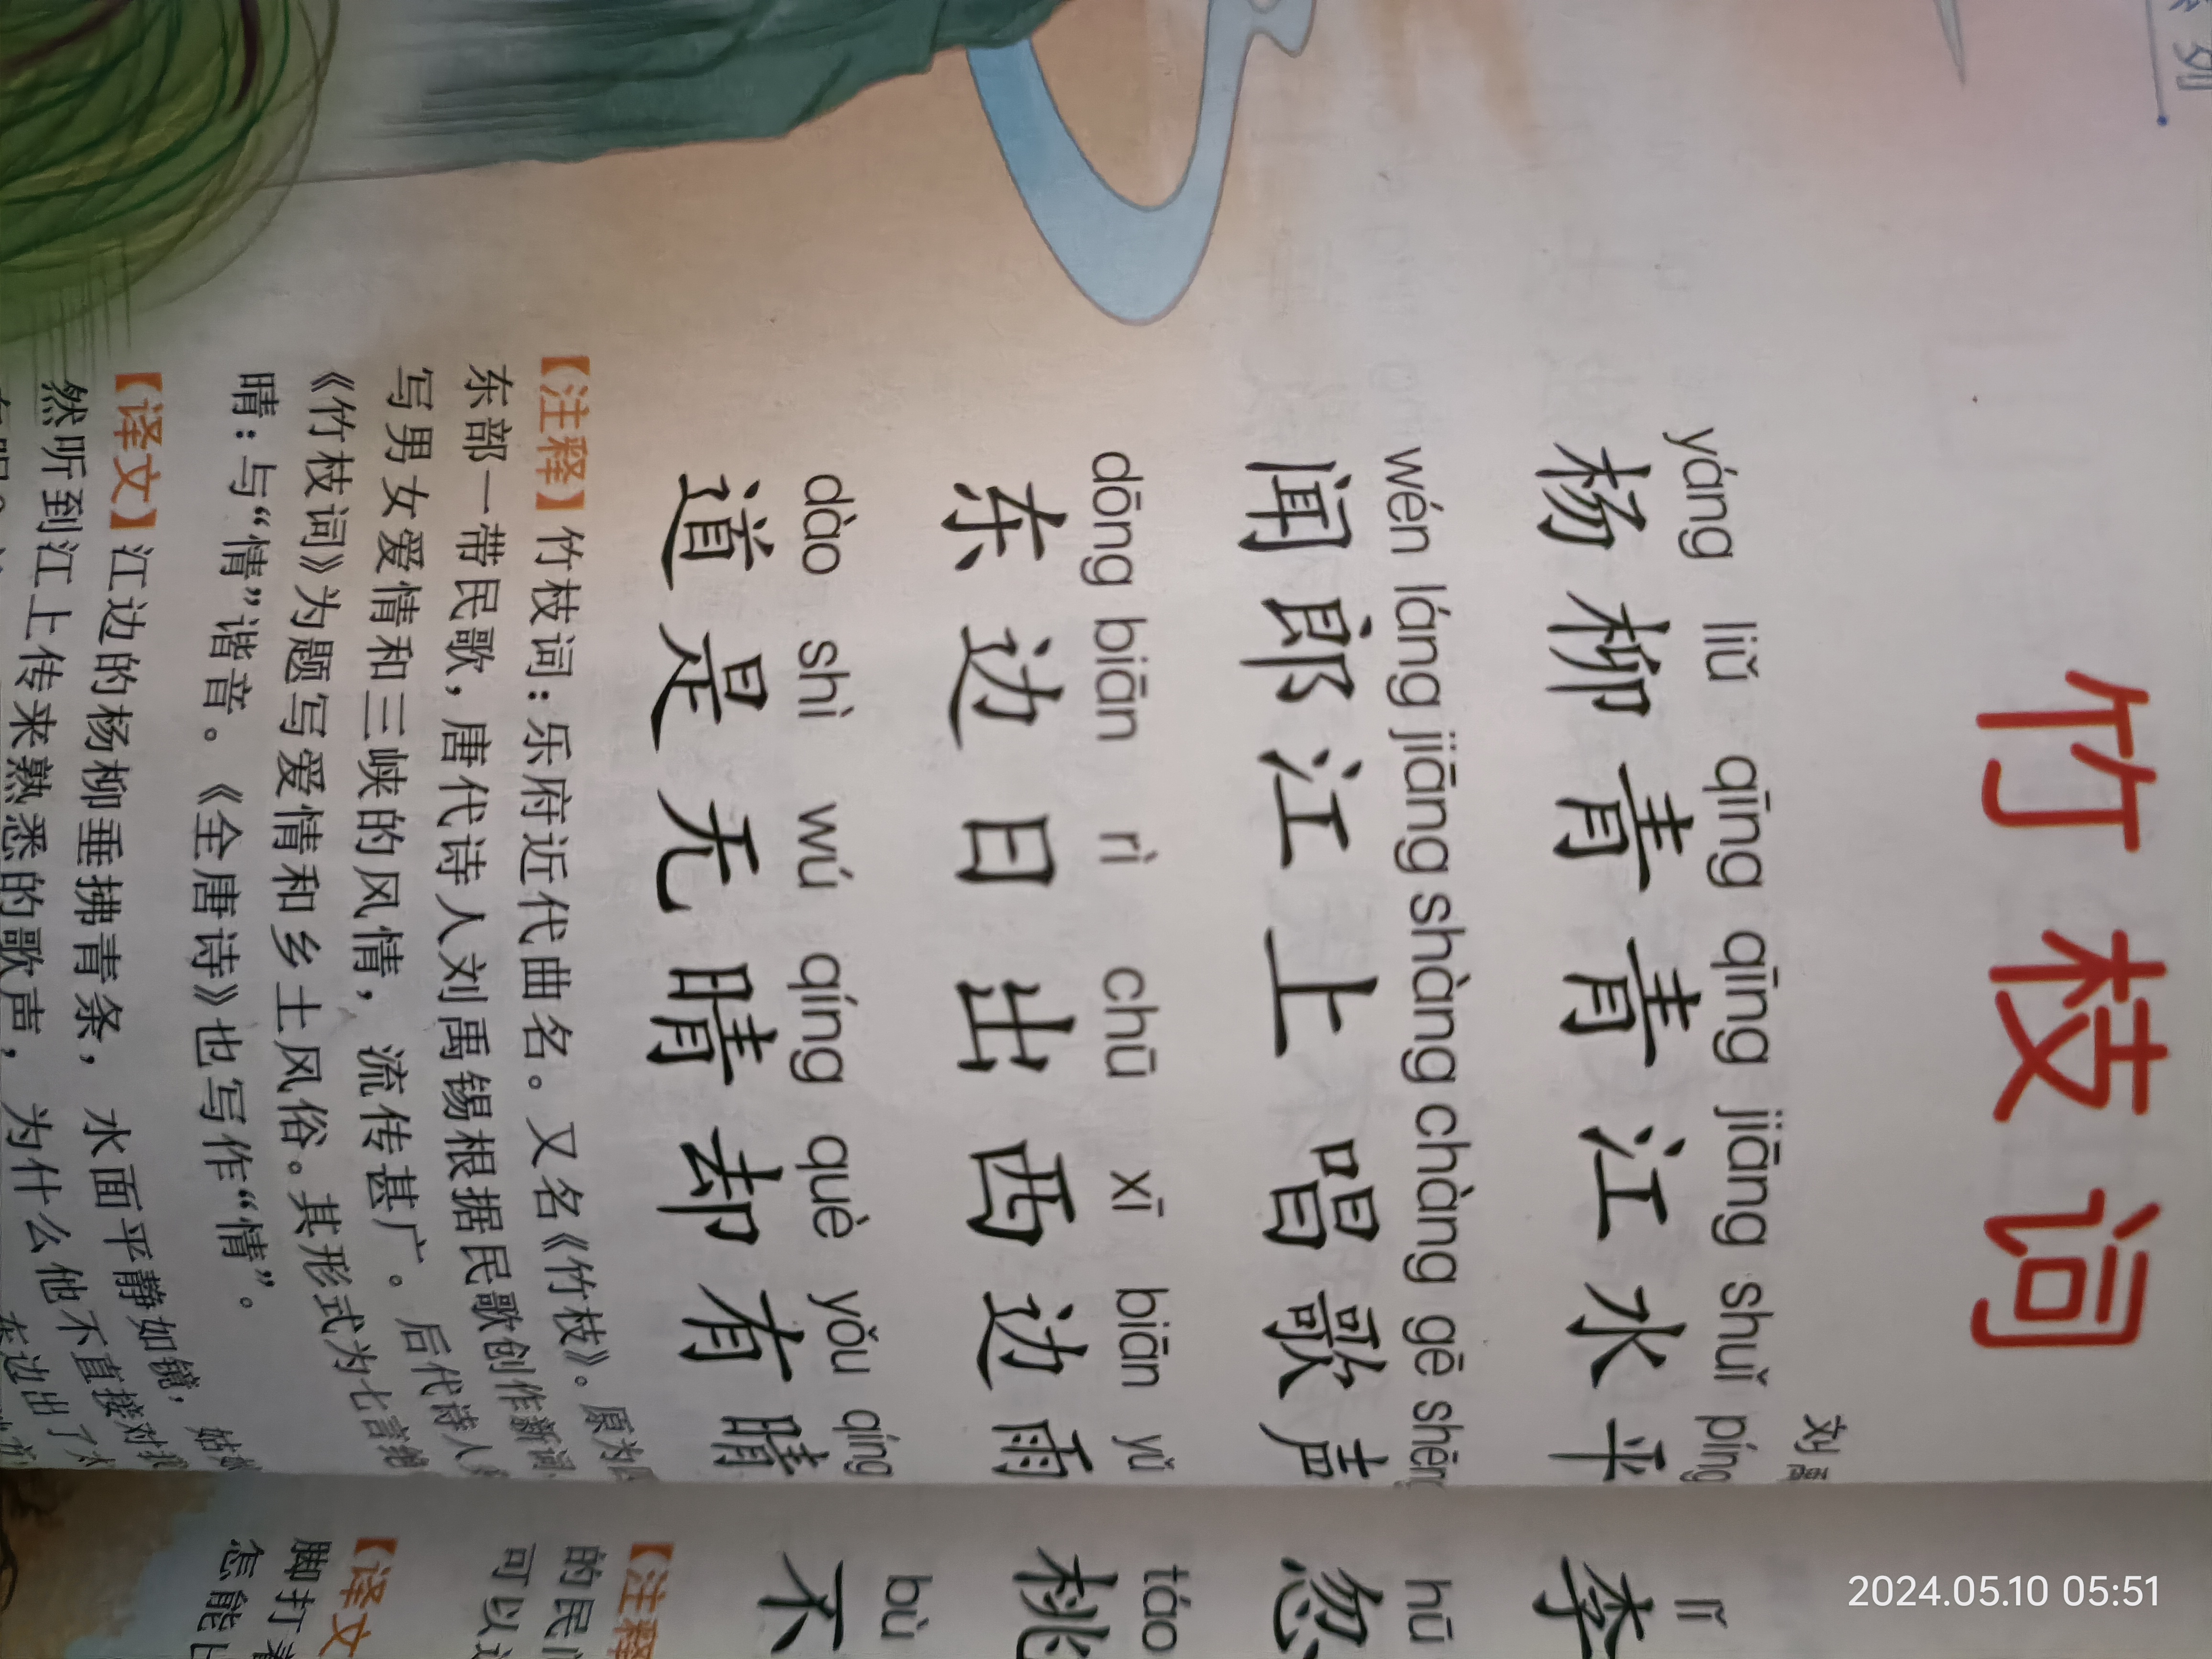 列
竹枝词
刘禹
yáng liǔ qīng qīng jiāng shuǐ píng
杨柳青青江水平
wén láng jiāng shàng chàng gē shēng
闻郎江上唱歌声
dōng biān rì chū xī biān yǔ
东边日出西边雨
dào shì wú qíng què yǒu qíng
道是无晴却有晴
【注释】竹枝词：乐府近代曲名。又名《竹枝》。原为
东部一带民歌，唐代诗人刘禹锡根据民歌创作新词
写男女爱情和三峡的风情，流传甚广。后代诗人
《竹枝词》为题写爱情和乡土风俗。其形式为七言绝
晴：与“情”谐音。《全唐诗》也写作“情”。
【译文】江边的杨柳垂拂青条，水面平静如镜，姑
然听到江上传来熟悉的歌声，为什么他不直接对
东边出了
lǐ
李
hū
忽
táo
桃
bù
不
【注释
的民
可以
【译文
脚打着
怎能
2024.05.10 05:51